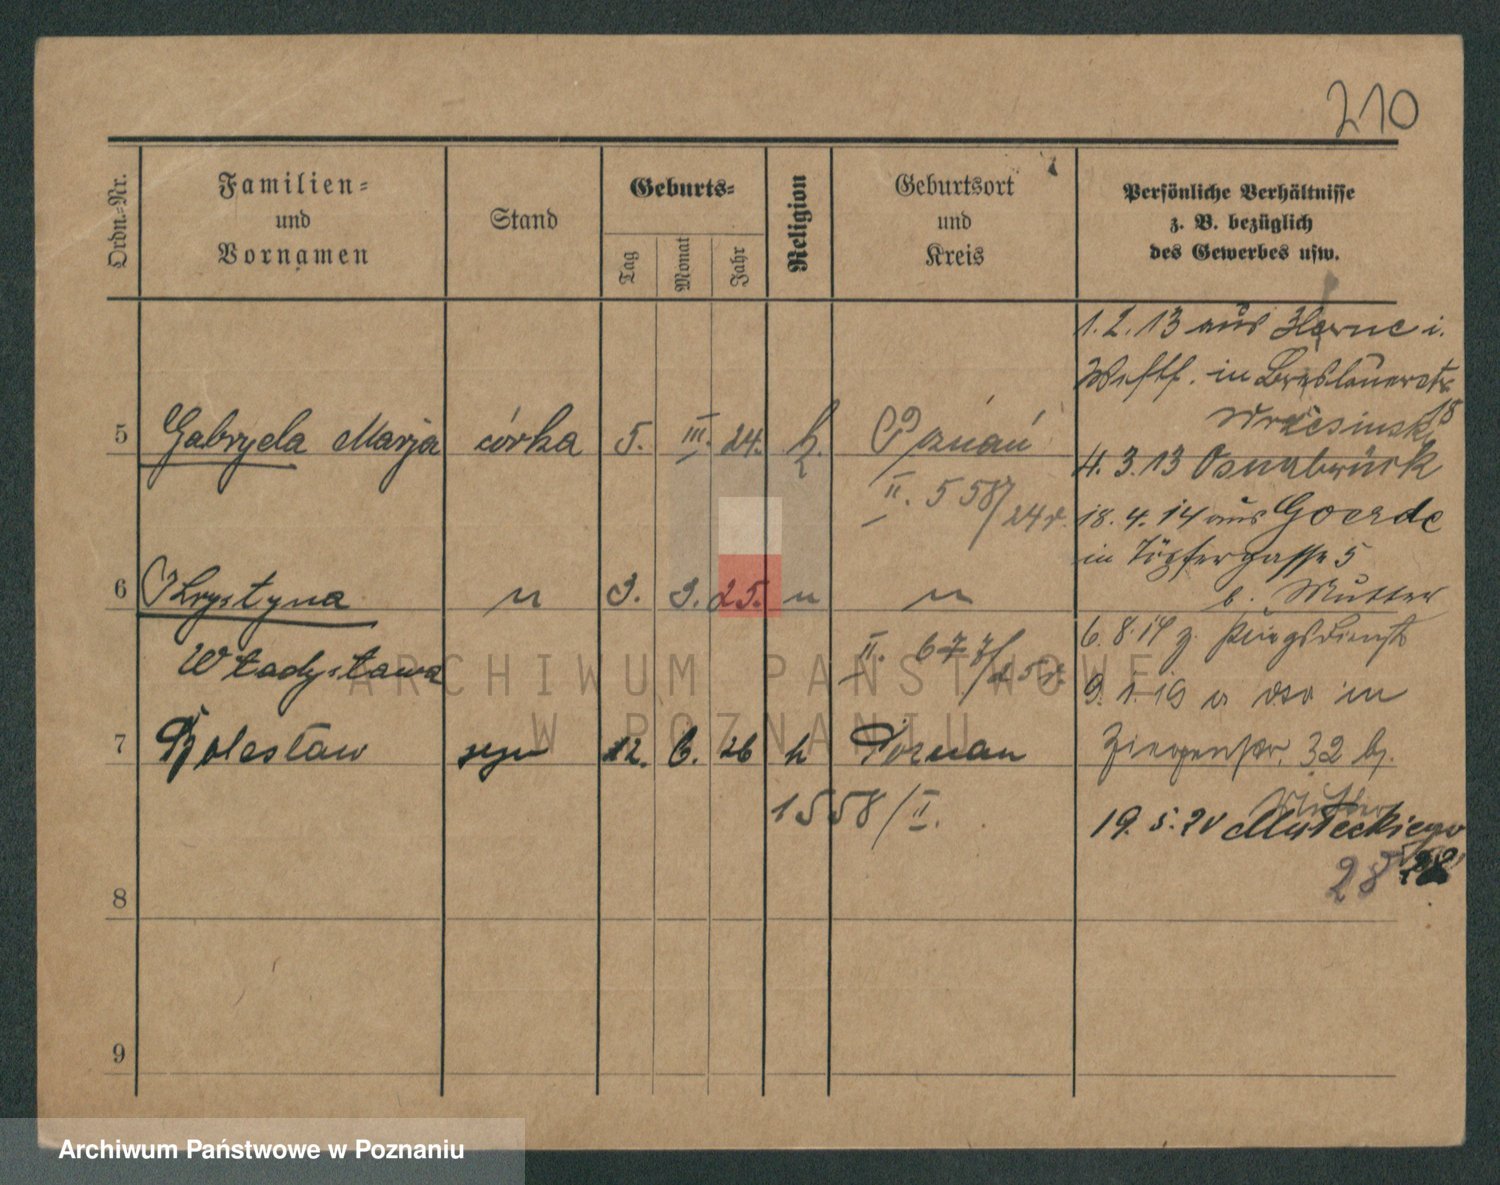 210
Ordn.-Nr.
Familien-
und
Vornamen
Stand
Geburts-
Tag
Monat
Jahr
Religion
Geburtsort
und
Kreis
Persönliche Verhältnisse
z. B. bezüglich
des Gewerbes usw.
5 Gabryela Marja córka 5. III. 24. k. Poznań
II. 558/24 r.
6 Krystyna " 3. 3. 25. " "
Władysława II. 677/25 r.
7 Bolesław syn 12. 6. 26 k Poznan
1558/II.
8
9
1. 2. 13 aus Herne i.
Westf. in Breslauerstr.
18
Wrzesinski
4. 3. 13 Osnabrück
18. 4. 14 aus Goerde
in Töpfergasse 5
b. Mutter
6. 8. 14 z. Kriegsdienst
9. 1. 19 in
32 bj.
Mutter
19. 5. 20 Małeckiego
28 28
ARCHIWUM PAŃSTWOWE
W POZNANIU
Archiwum Państwowe w Poznaniu